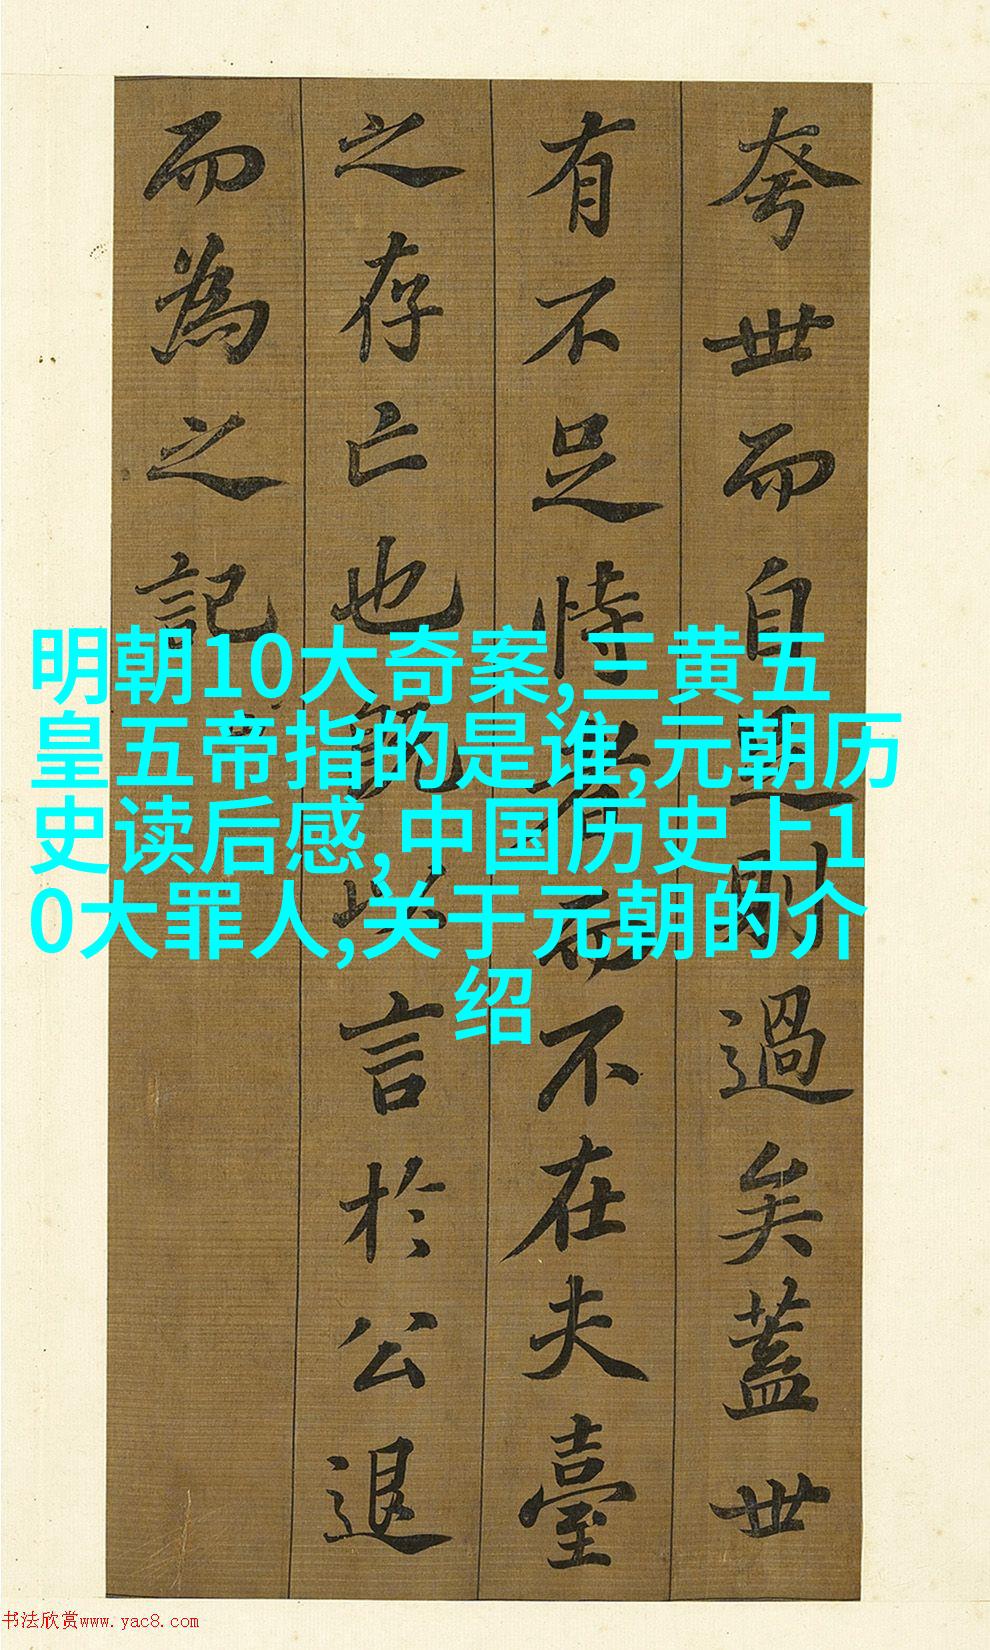 夸世而自足則過矣蓋世
有不足恃者而不在夫臺
之存亡也既以言於公退
而為之記
明朝10大奇案,三黄五
皇五帝指的是谁,元朝历
史读后感,中国历史上1
0大罪人,关于元朝的介
绍
书法欣赏www.yac8.com